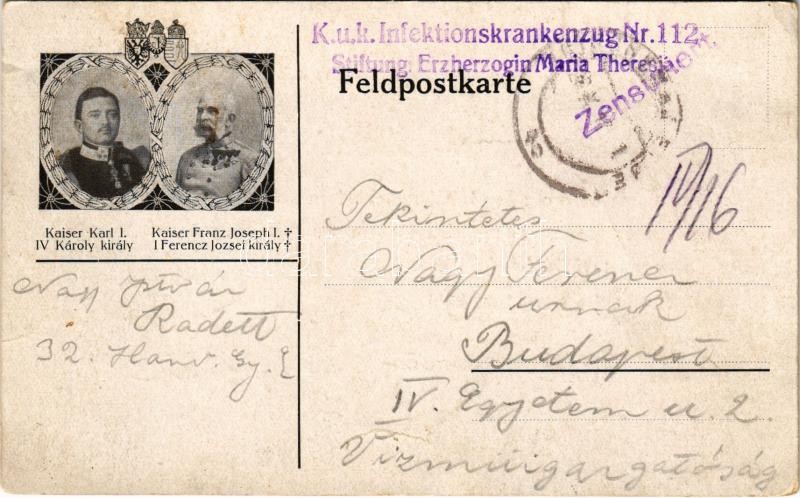 K.u.k. Infektionskrankenzug Nr. 112.
Stiftung: Erzherzogin Maria Theresia
Feldpostkarte
Zensuriert
Kaiser Karl I.
IV Károly király
Kaiser Franz Joseph I. †
I Ferencz József király †
14/16
Tekintetes
Nagy Ferenc
urnak
Budapest
IV. Egyetem u. 2.
Vizmüigazgatóság
Nagy István
Kadett
32. Honv. Gy. E